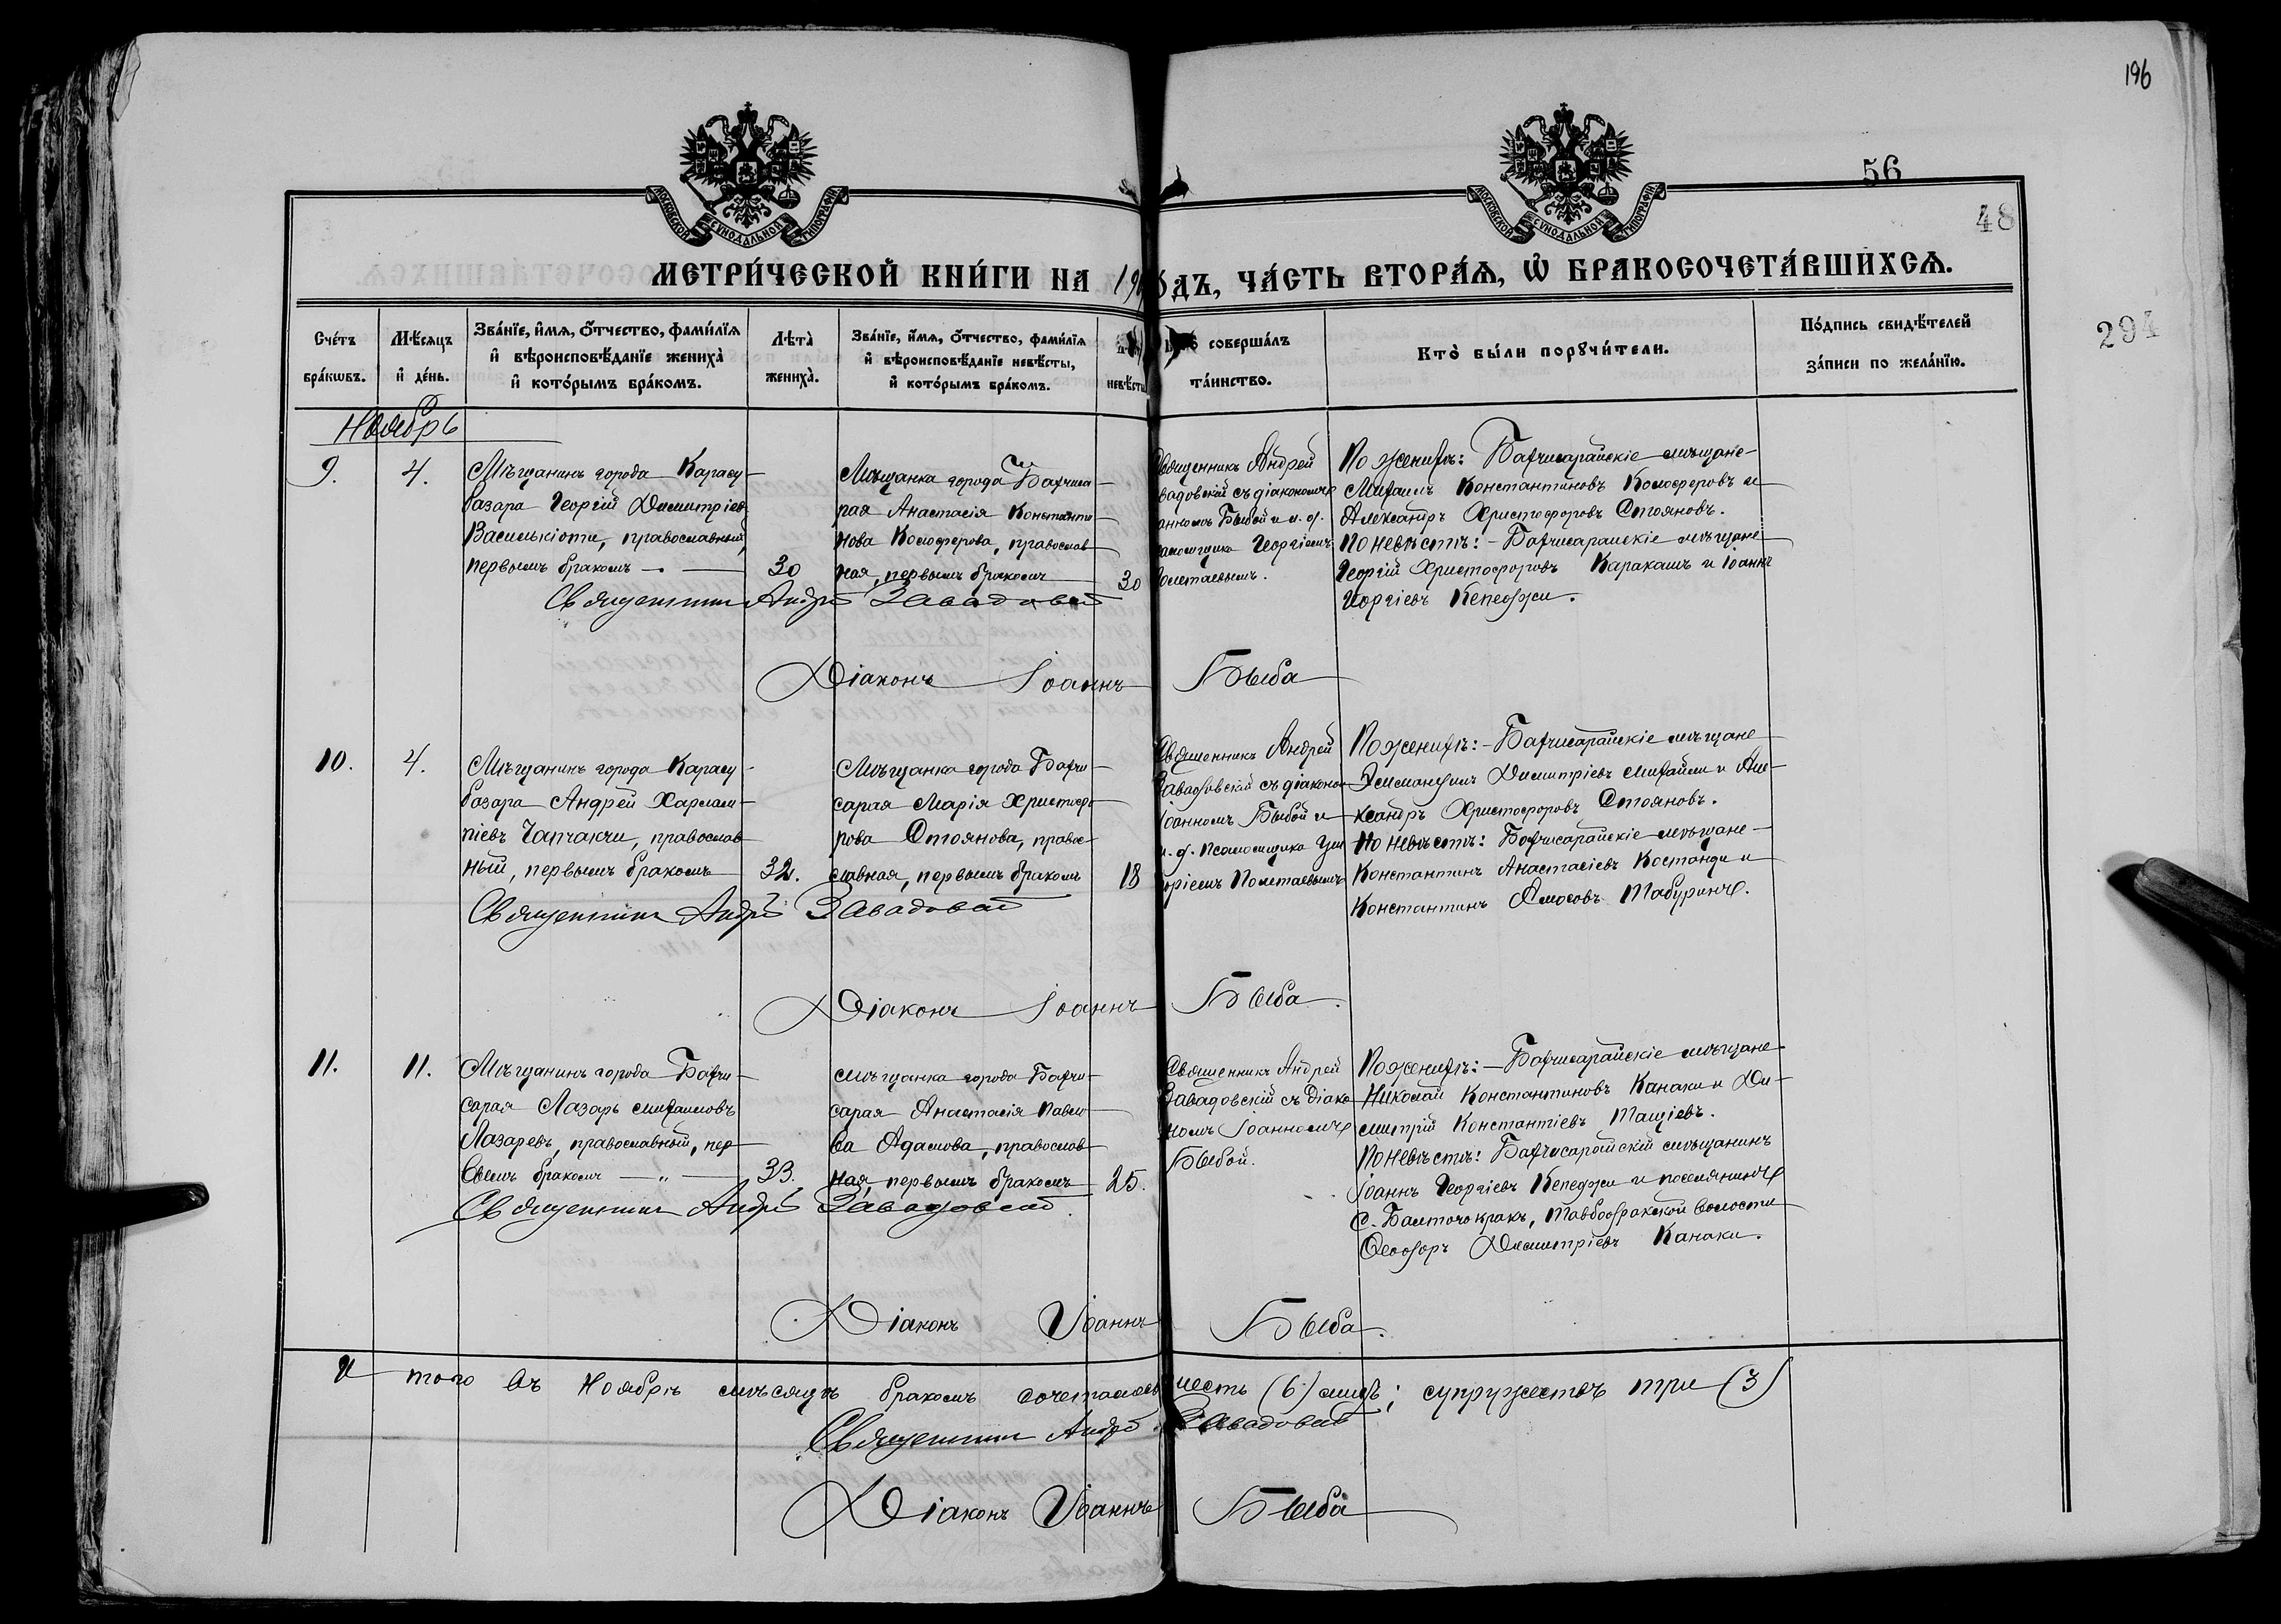 196
56
48
294
МОСКОВСКОЙ СѴНОДАЛЬНОЙ ТИПОГРАФІИ
МОСКОВСКОЙ СѴНОДАЛЬНОЙ ТИПОГРАФІИ
МЕТРИ́ЧЕСКОЙ КНИ́ГИ НА 19 ОДЪ, ЧА́СТЬ ВТОРА́Ѧ, Ѽ БРАКОСОЧЕТА́ВШИХСѦ.
Сче́тъ бра́кѡвъ.
Мѣ́сяцъ и҆ де́нь.
Зва́нїе, и҆́мя, ѻ҆́тчество, фами́лїя
и҆ вѣроисповѣ́данїе жениха̀
и҆ кото́рымъ бра́комъ.
Лѣта̀ жениха̀.
Зва́нїе, и҆́мя, ѻ҆́тчество, фами́лїя
и҆ вѣроисповѣ́данїе невѣ́сты,
и҆ кото́рымъ бра́комъ.
невѣ́сты
совершáлъ
та́инство.
Кто̀ бы́ли порꙋчи́тели.
По́дпись свидѣ́телей
за́писи по жела́нїю.
Ноябрь
9.
4.
Мѣщанинъ города Карасу-
базара Георгій Димитріевъ
Василькіоти, православный,
первымъ бракомъ
30
Мѣщанка города Бахчиса-
рая Анастасія Константи-
нова Колоферова, православ-
ная, первымъ бракомъ
30
Священникъ Андрей
вадовскій съ діакономъ
анномъ Быбой и и. д.
псаломщика Георгіемъ
Полтаевымъ.
По женихѣ: Бахчисарайскіе мѣщане-
Михаилъ Константиновъ Колоферовъ и
Александръ Христофоровъ Стояновъ.
По невѣстѣ: - Бахчисарайскіе мѣщане
Георгій Христофоровъ Каракашъ и Іоаннъ
Георгіевъ Кепеджи.
Священникъ Андрей Завадовскій
Діаконъ Іоаннъ Быба
10.
4.
Мѣщанинъ города Карасу-
базара Андрей Харлам-
піевъ Чапчакчи, православ-
ный, первымъ бракомъ
32.
Мѣщанка города Бахчи-
сарая Марія Христофо-
рова Стоянова, правос-
лавная, первымъ бракомъ
18
Священникъ Андрей
Завадовскій съ діакономъ
Іоанномъ Быбой и
и. д. псаломщика Геи
оргіемъ Полтаевымъ
По женихѣ: - Бахчисарайскіе мѣщане
Димитріевъ Михайли и Але-
ксандръ Христофоровъ Стояновъ.
По невѣстѣ: Бахчисарайскіе мѣщане-
Константинъ Анастасіевъ Костанди и
Константинъ Амосовъ Табуринъ.
Священникъ Андрей Завадовскій
Діаконъ Іоаннъ Быба.
11.
11.
Мѣщанинъ города Бахчи-
сарая Лазарь Михаиловъ
Лазаревъ, православный, пер-
вымъ бракомъ — „ —
33.
мѣщанка города Бахчи-
сарая Анастасія Павло-
ва Адамова, православ-
ная, первымъ бракомъ
25.
Священникъ Андрей
Завадовскій съ Діако-
номъ Іоанномъ
Быбой.
По женихѣ: - Бахчисарайскіе мѣщане-
Николай Константиновъ Канаки и Ди-
митрій Константіевъ
По невѣстѣ: Бахчисарайскій мѣщанинъ
Іоаннъ Георгіевъ Кепеджи и поселянинъ
с. Балточокракъ, Тавбодракской волости
Ѳеодоръ Димитріевъ Канаки.
Священникъ Андрей Завадовскій.
Діаконъ Іоаннъ Быба.
И того въ Ноябрѣ мѣсяцѣ бракомъ сочеталось шесть (6) лицъ; супружествъ три (3)
Священникъ Андрей Завадовскій
Діаконъ Іоаннъ Быба